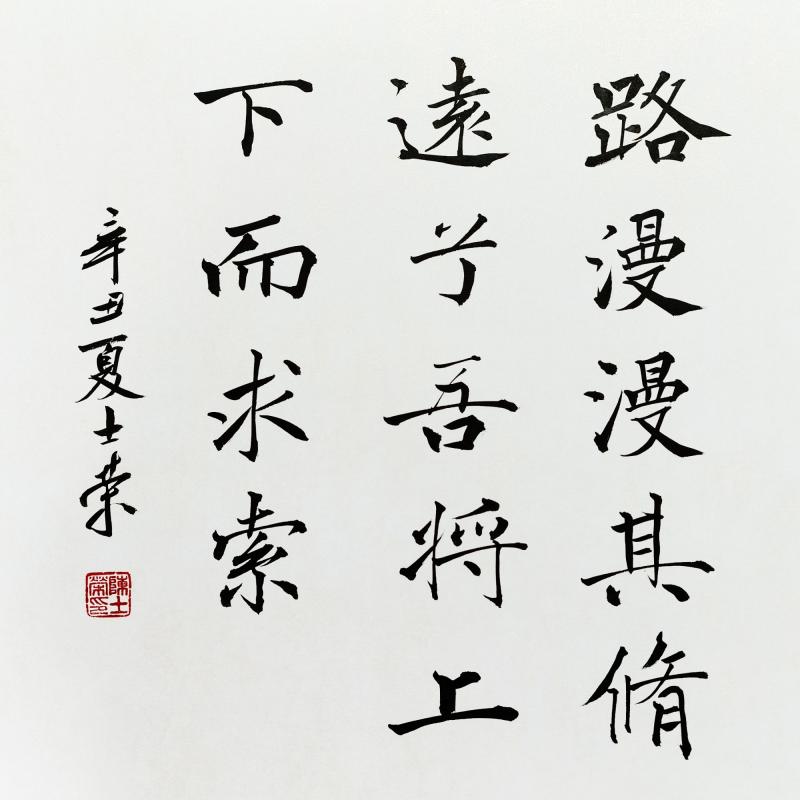 路漫漫其脩
遠兮吾將上
下而求索
辛丑夏士荣
陳士榮印